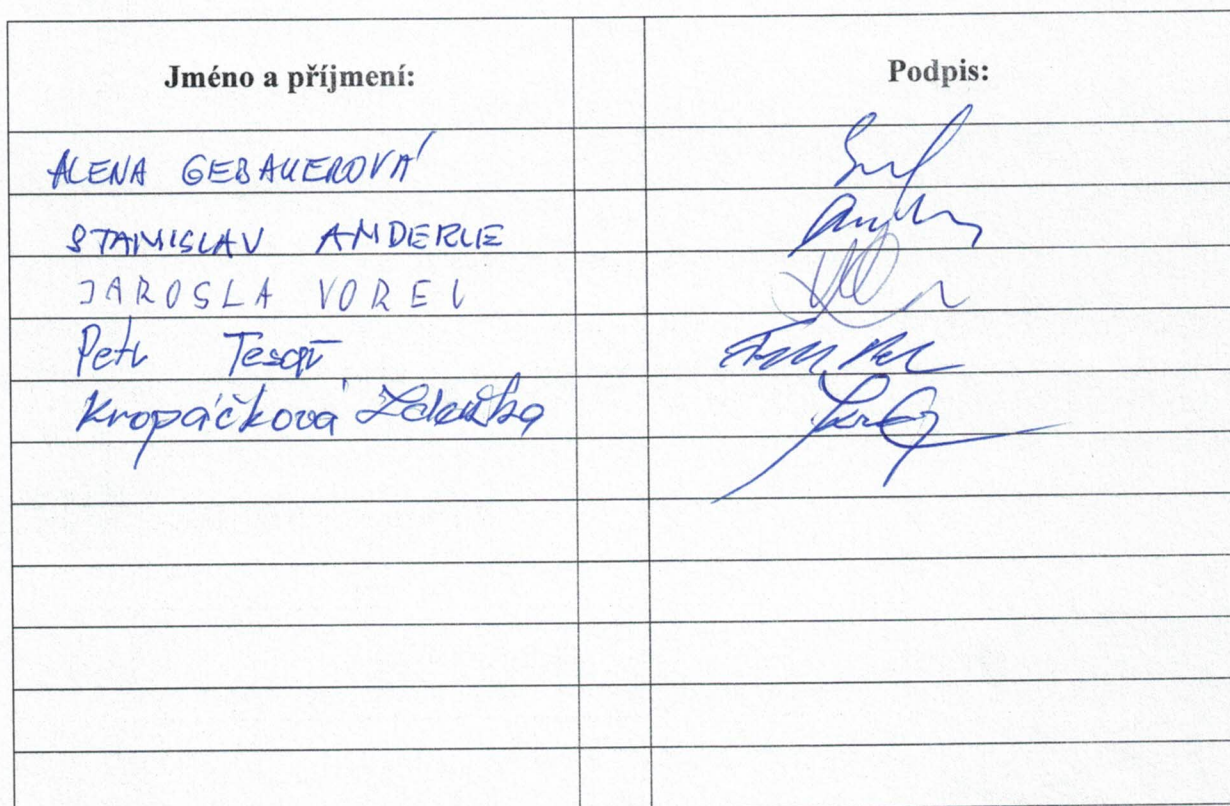 Jméno a příjmení: Podpis:
ALENA GEBAUEROVÁ
STANISLAV ANDERLE
JAROSLA VOREL
Petr Tesař
Kropáčková Zdeňka